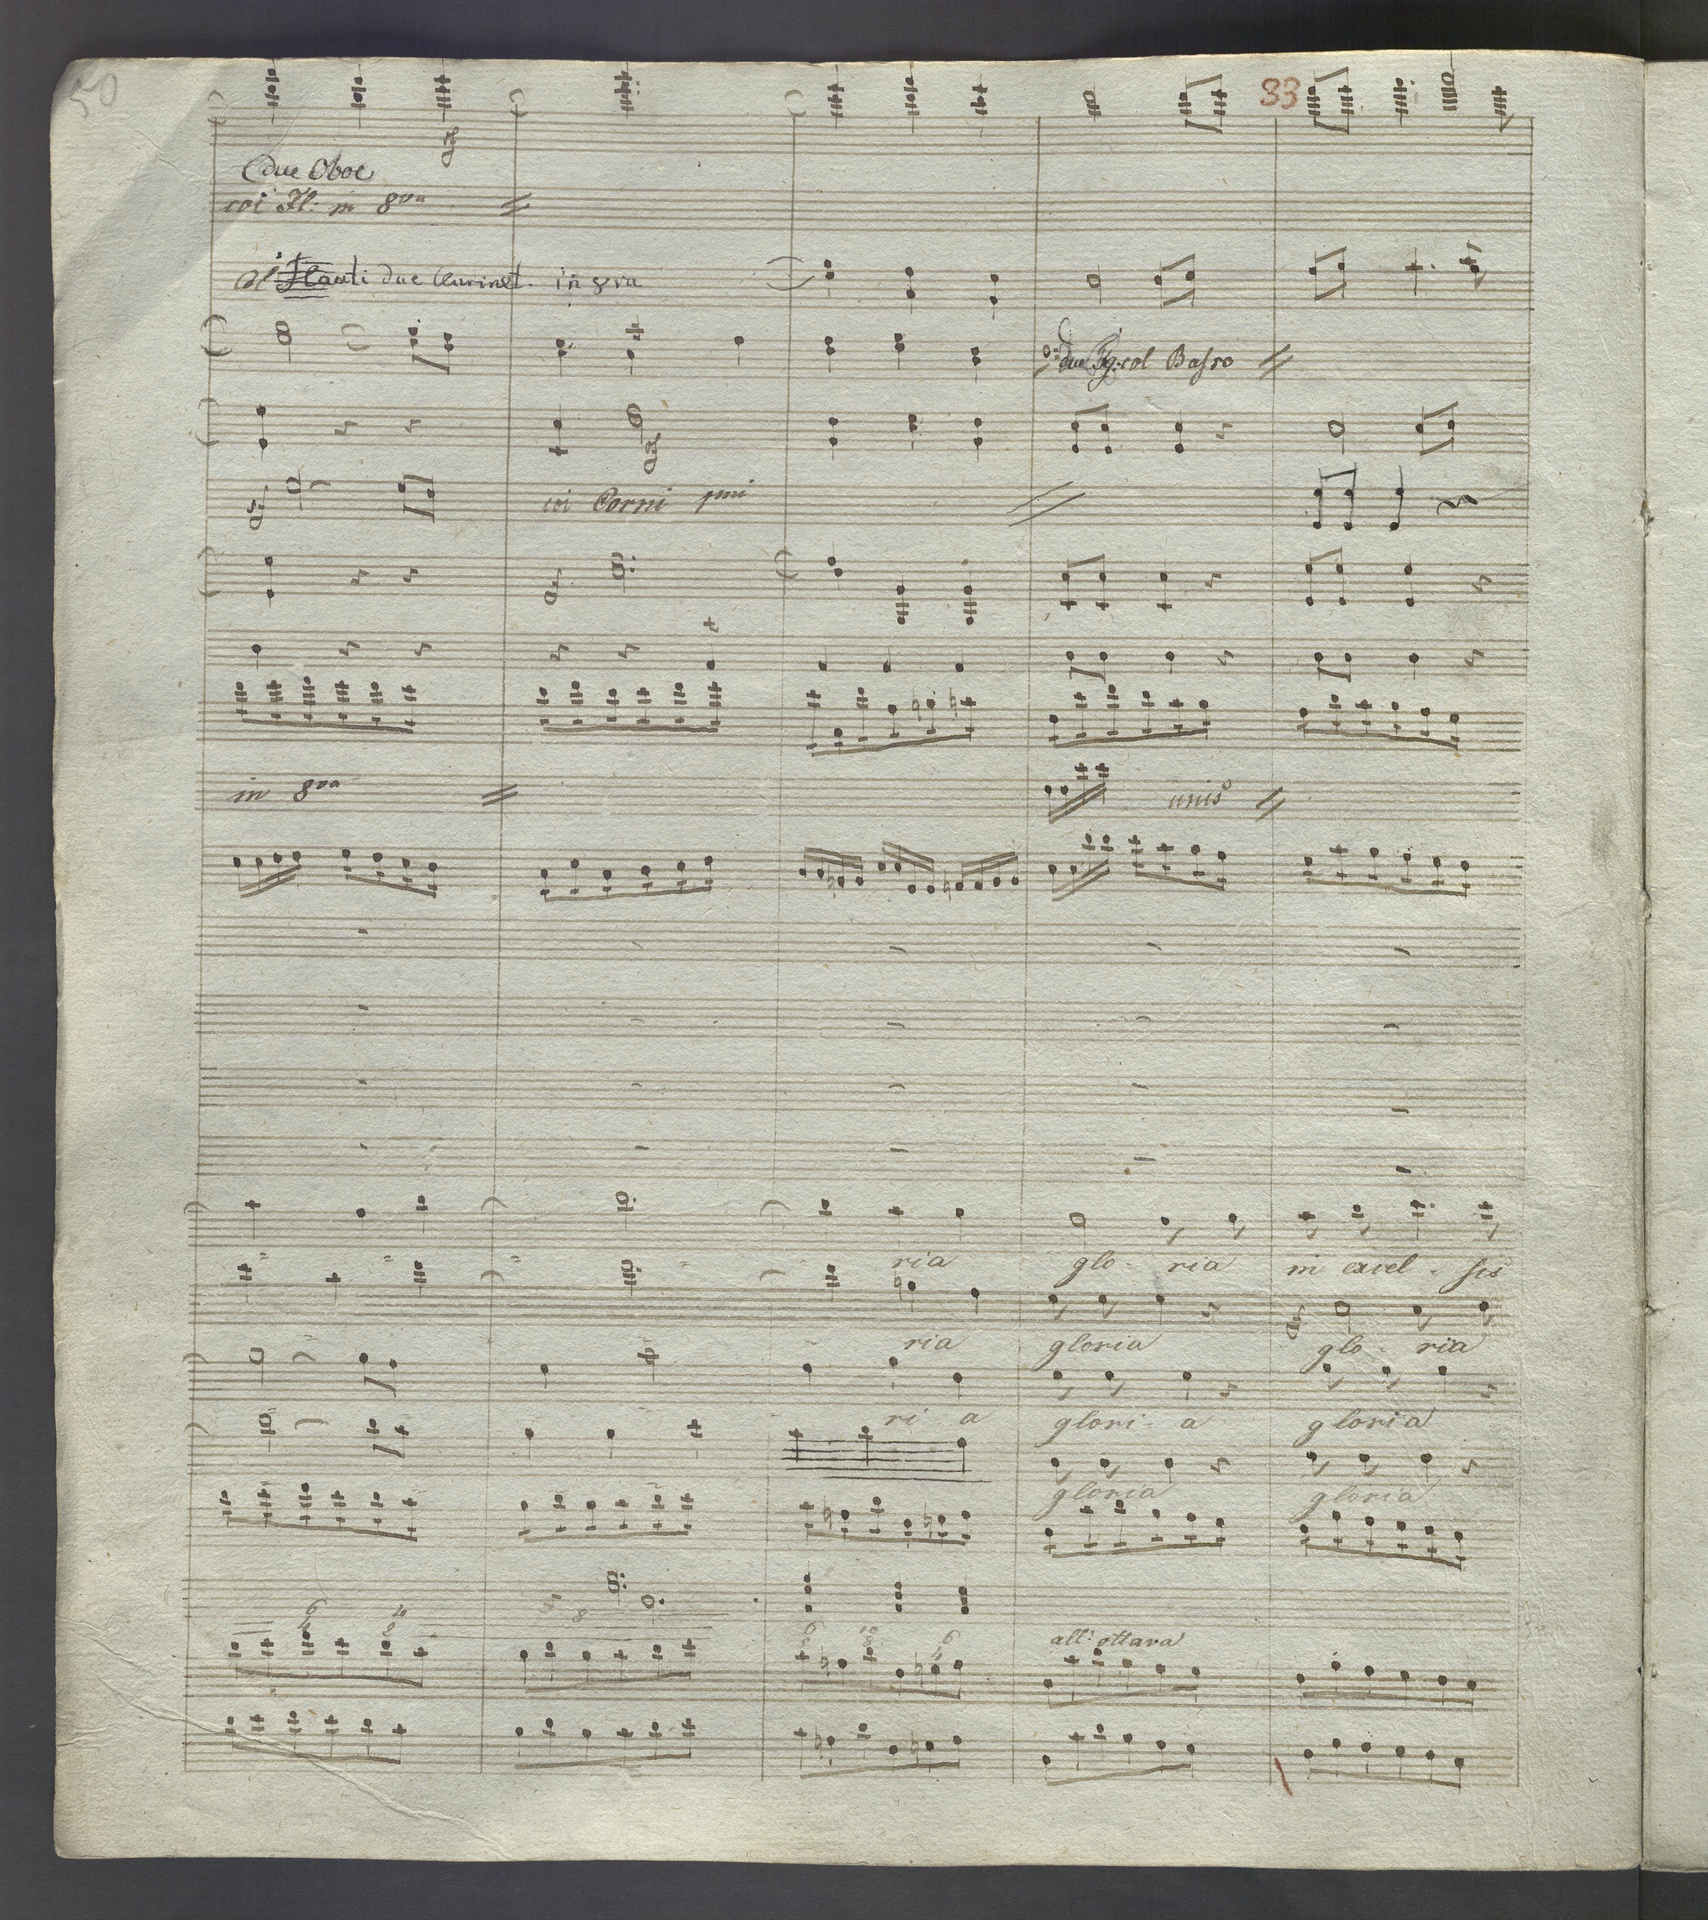 50
33
due Oboe
coi Fl: in 8va
col Flauti due Clarinet. in 8va
due Fg: col Basso
coi Corni pmi
in 8va
unis
ria glo - ria in excel - sis
ria gloria glo - ria
ri - a glori - a gloria
gloria gloria
6 4 10 8
5 8
6 10 8 6
all' ottava